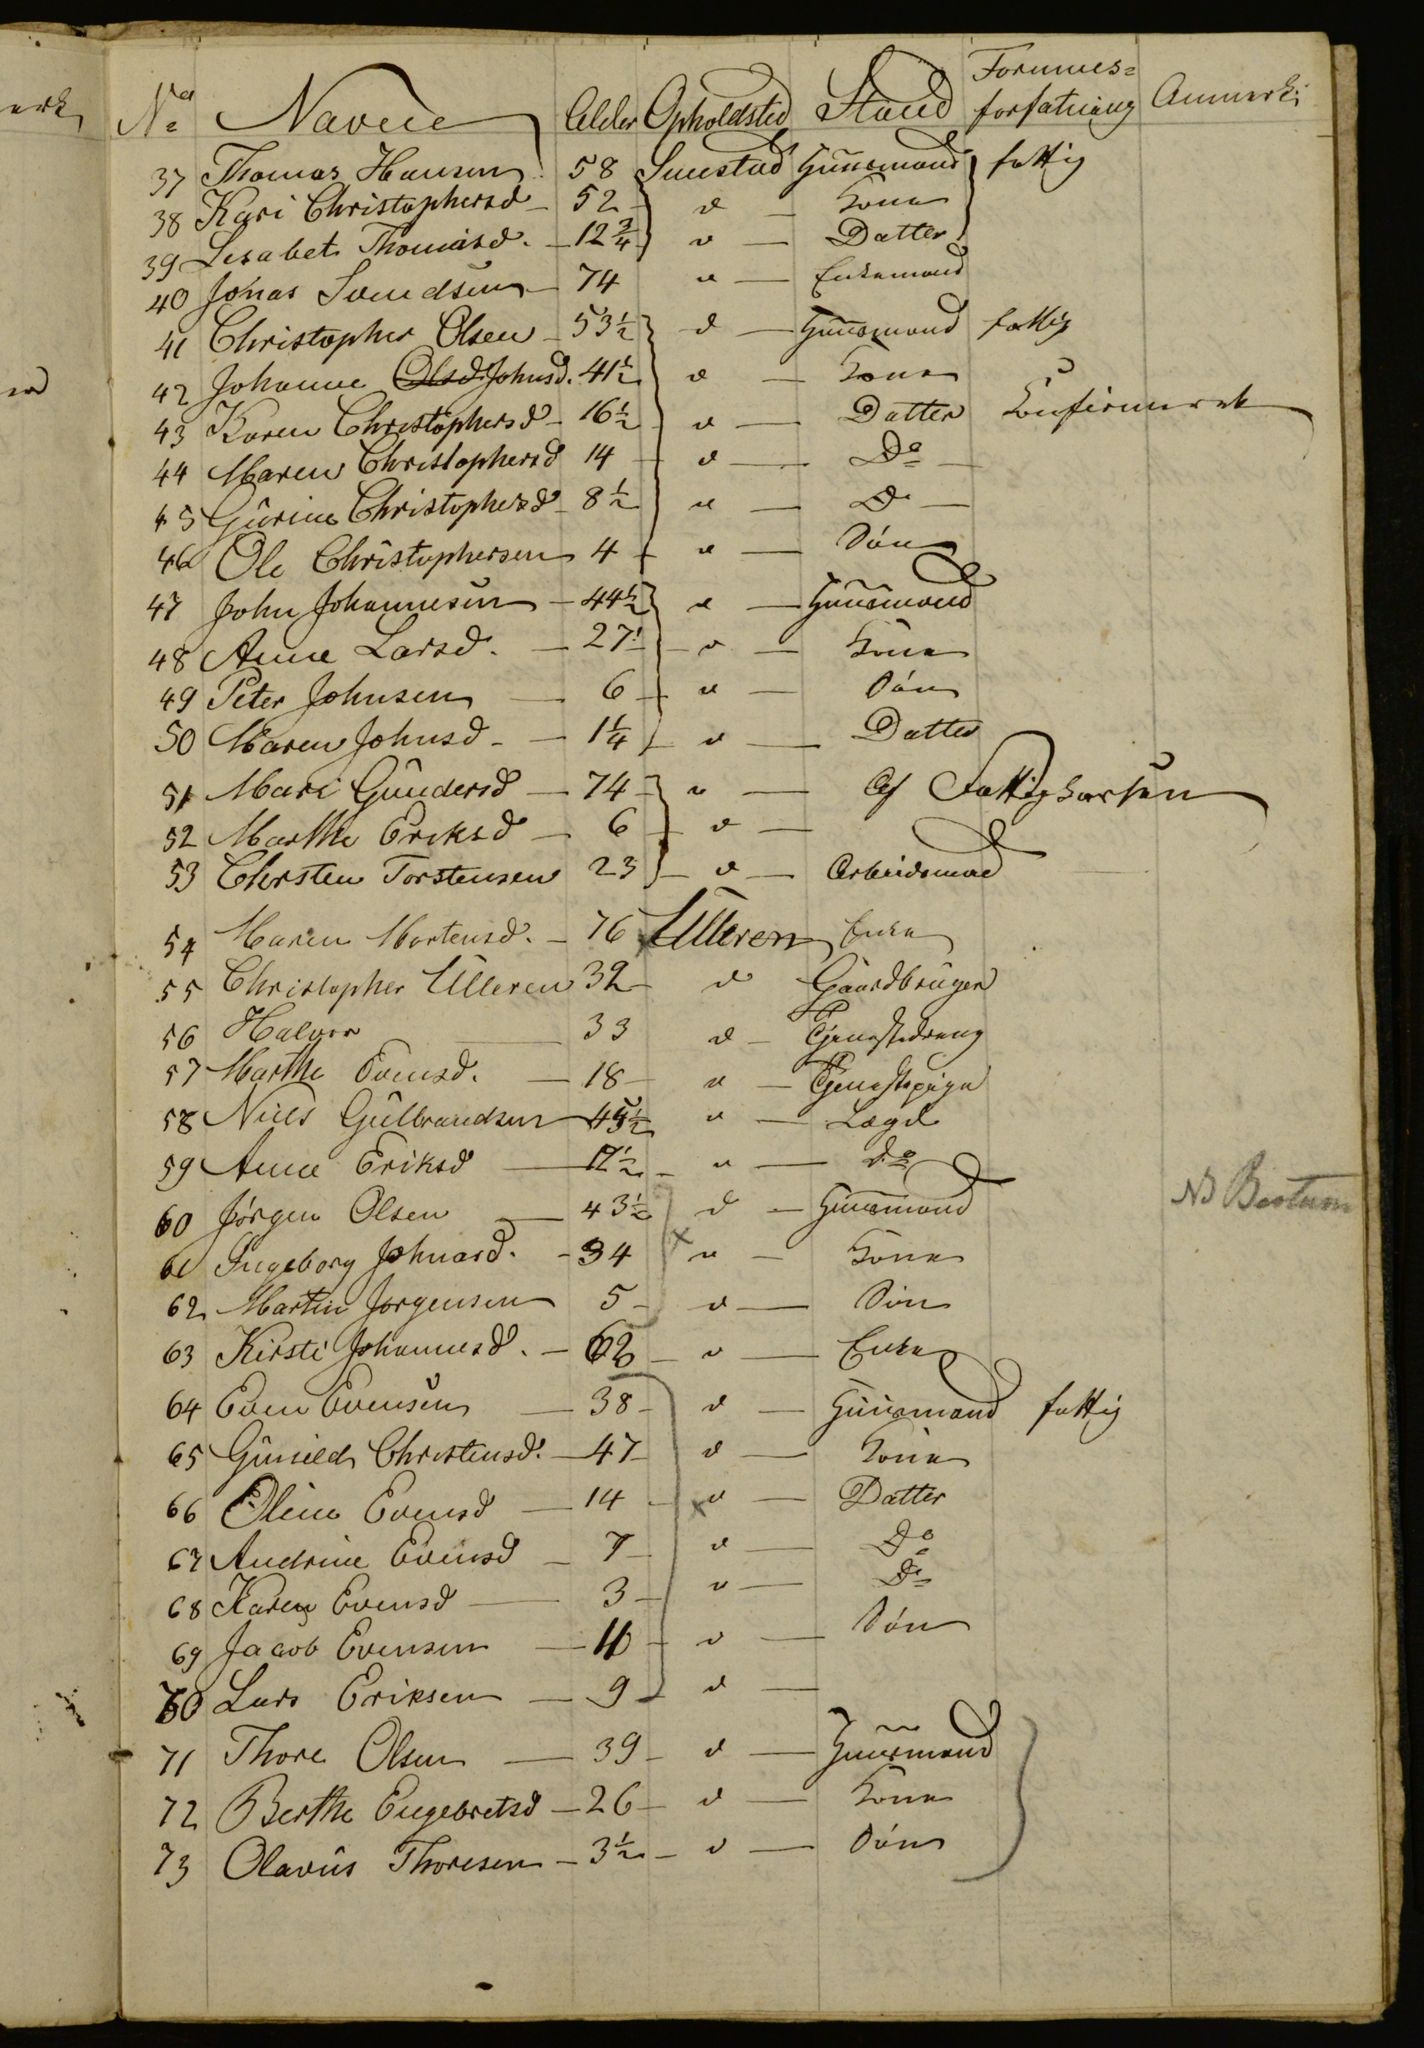 No Navne Alder Opholdsted Stand Formues= forfatning Anmerk:
37 Thomas Hansen 58 Smestad Huusmand fattig
38 Kari Christophersd - 52 - d - Kone
39 Lisabet Thomasd. - 12 3/4 d - Datter
40 Jonas Svendsen - 74 d - Enkemand
41 Christopher Olsen - 53 1/2 d - Huusmand fattig
42 Johanne Johnsd. 41 1/2 d - Kone
43 Karen Christophersd - 16 1/2 d - Datter Confirmeret
44 Maren Christophersd 14 - d - Do -
45 Gurine Christophersd - 8 1/2 d - Do -
46 Ole Christophersen 4 - d - Søn
47 John Johannesen - 44 1/2 d - Huusmand
48 Anne Larsd. - 27 - d - Kone
49 Peter Johnsen - 6 - d - Søn
50 Maren Johnsd - - 1 1/4 - d - Datter
51 Mari Gundersd - 74 - d - af Fattigkassen
52 Marthe Eriksd - 6 - d -
53 Chersten Torstensen 23 - d - Arbeidsmand
54 Maren Mortensd. - 76 Ulleren Enke
55 Christopher Ulleren 32 - d Gaardbruger
56 Halvor - 33 d - Tjenestedreng
57 Marthe Evensd. - 18 - d - Tjenestepige
58 Niels Gulbrandsen 45 1/2 d - Lægd
59 Anne Eriksd - 17 1/2 - d - Do
60 Jørgen Olsen - 43 1/2 d - Huusmand NB Bestum
61 Ingeborg Johnasd. - 34 d - Kone
62 Martin Jørgensen 5 - d - Søn
63 Kirsti Johannesd. - 62 - d - Enke
64 Even Evensen - 38 - d - Huusmand fattig
65 Gunild Christensd. - 47 - d - Kone
66 Oline Evensd - 14 - d - Datter
67 Andrine Evensd - 7 - d - Do
68 Karen Evensd - 3 - d - Do
69 Jacob Evensen - 10 - d - Søn
70 Lars Eriksen - 9 - d -
71 Thore Olsen - 39 - d - Huusmand
72 Berthe Engebretsd - 26 - d - Kone
73 Olavus Thoresen - 3 1/2 - d - Søn